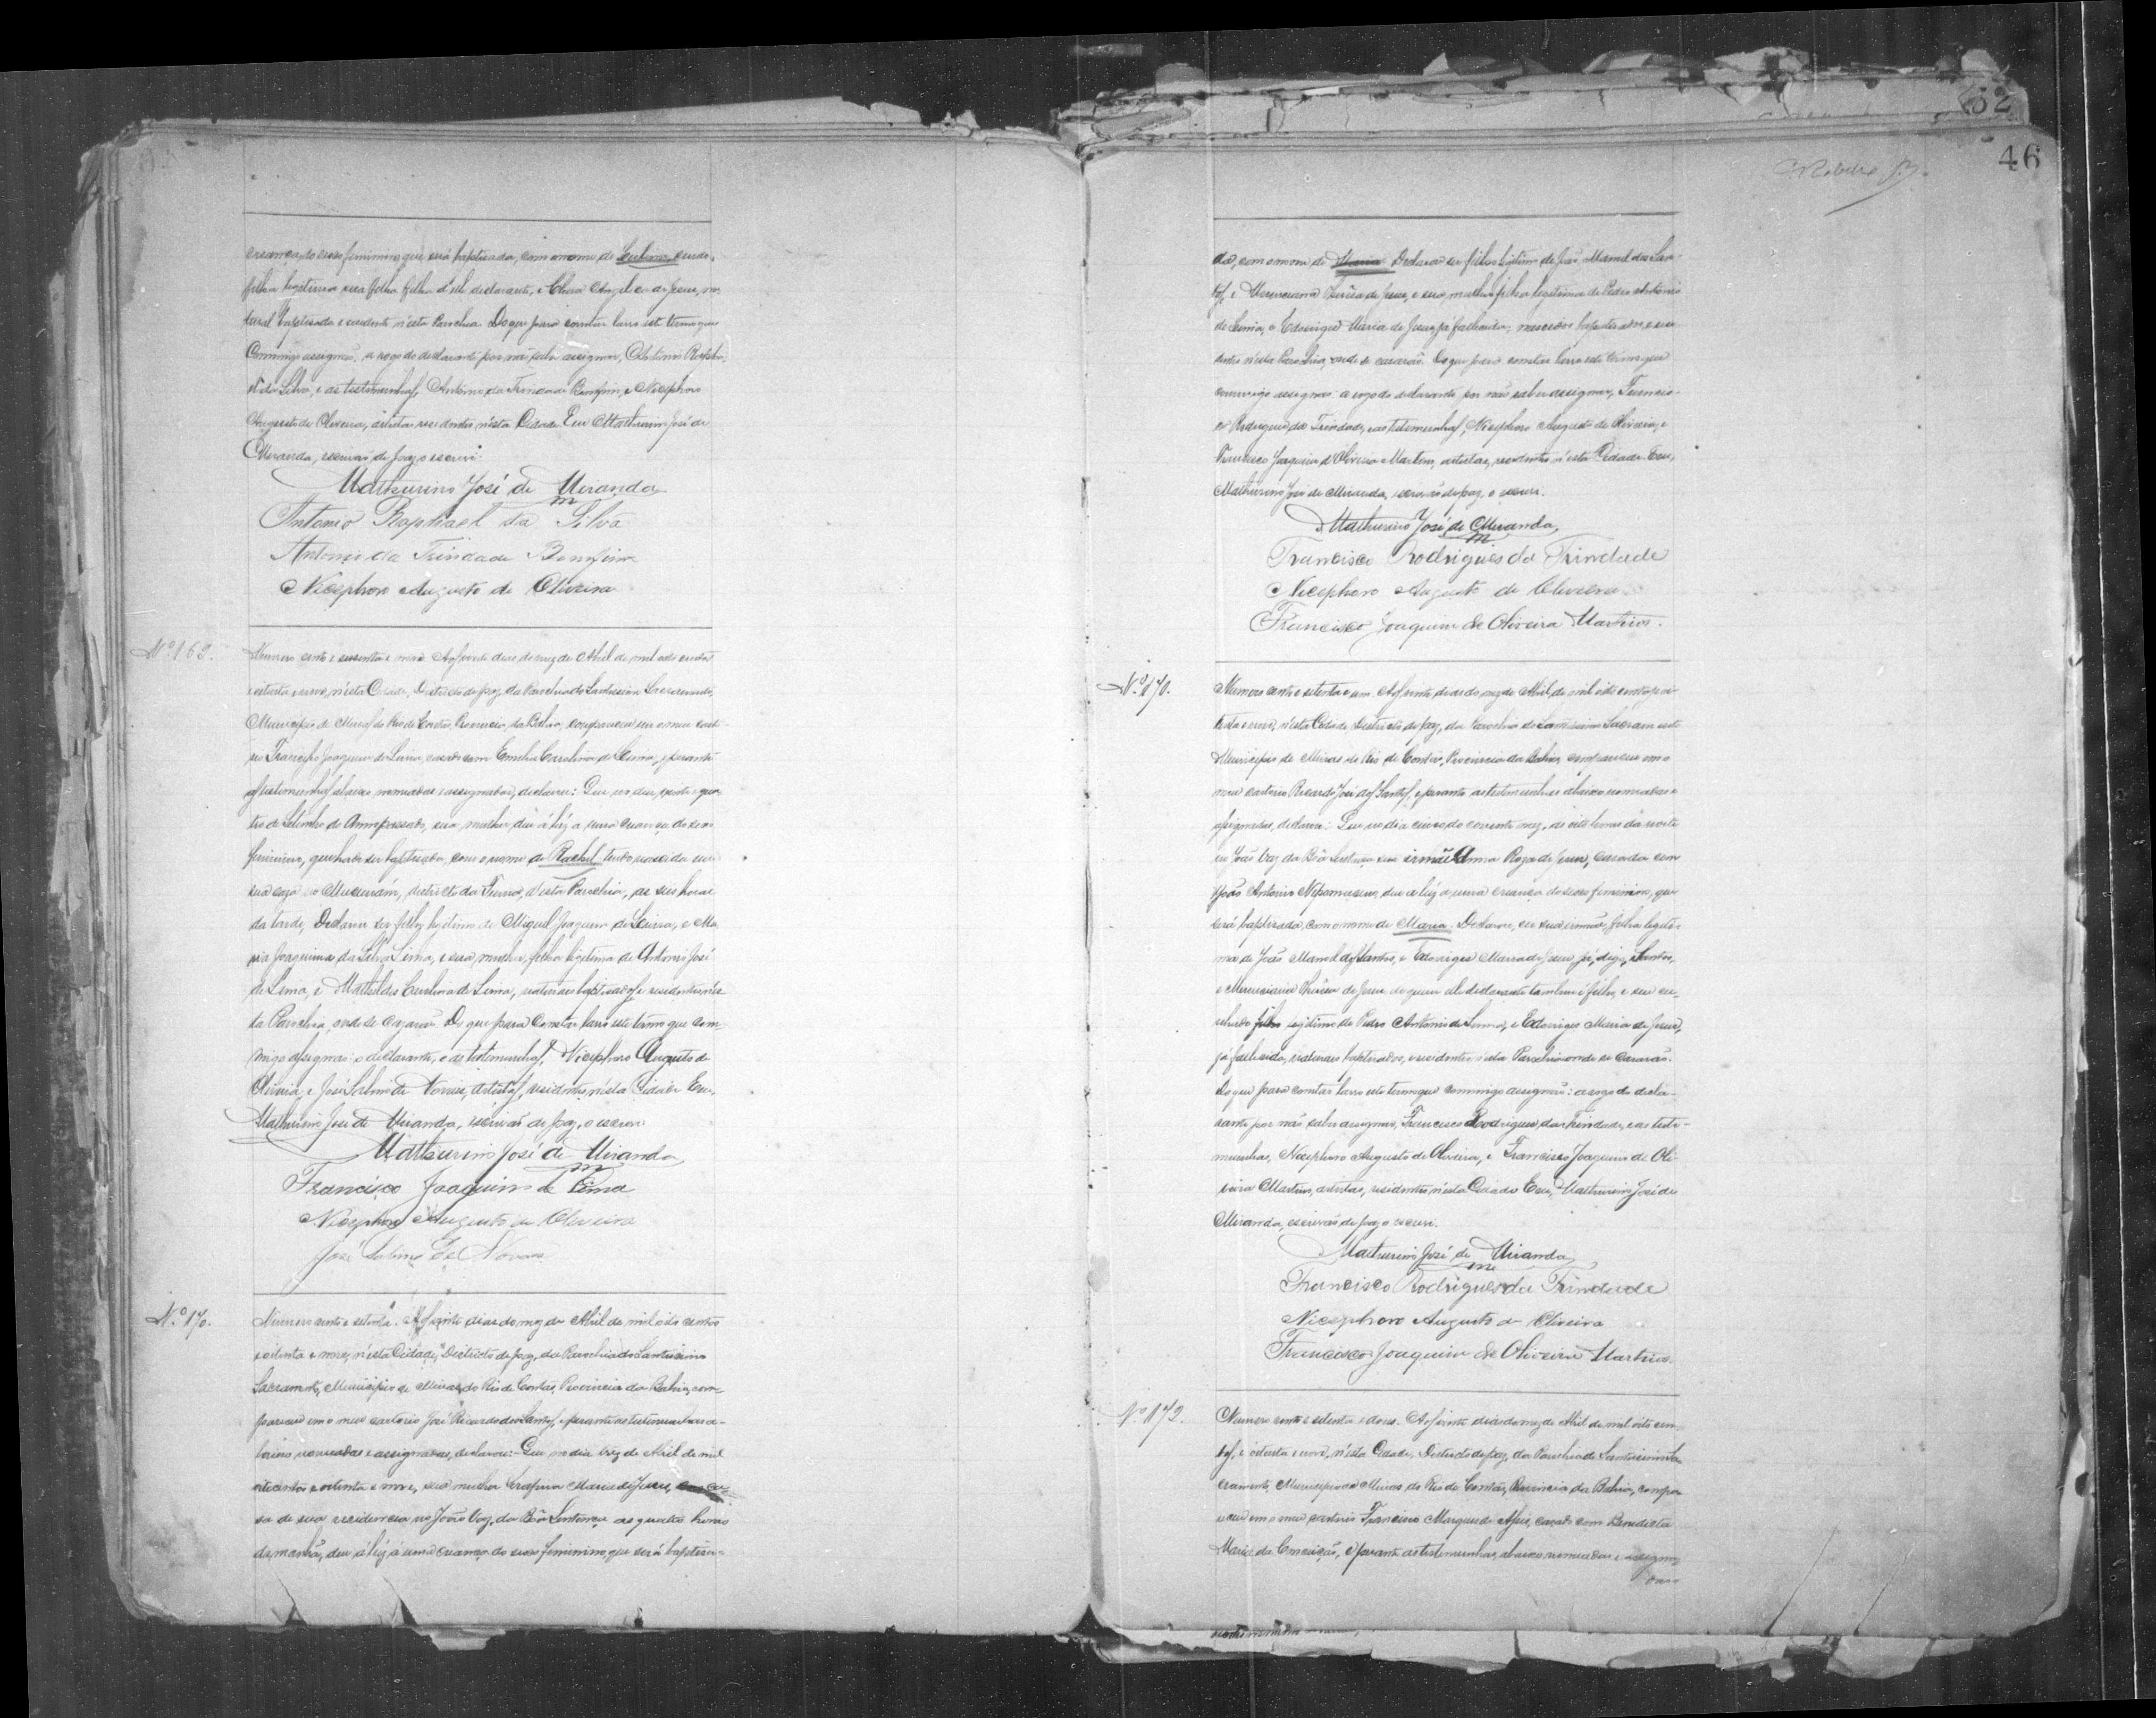 creança do sexo feminino que será baptisada, com o nome de
filha legitima filha d'elle declarante, e Clara Angelica de Jesus, na-
tural baptisada e residente n'esta Parochia. Do que para constar lavro este termo que
Commigo assignão, a rogo do declarante por não saber assignar, Antonio Rapha-
el da Silva, e as testemunhas, Antonio da Trindade Bomfim, e Nicephoro
Augusto de Oliveira, artistas residentes n'esta Cidade. Eu Mathurino José de
Miranda, escrivão de paz, o escrevi.
Mathurino José de Miranda
Antonio Raphael da Silva
Antonio da Trindade Bomfim
Nicephoro Augusto de Oliveira
Nº 169.
Numero cento e sessenta e nove. Aos vinte dias do mez de Abril de mil oito centos
e oitenta e nove, n'esta Cidade, Districto de paz, da Parochia do Santissimo Sacramento,
Municipio de Minas do Rio de Contas, Provincia da Bahia, compareceu em o meu carto-
rio Francisco Joaquim de Lima, casado com Emilia Carolina de Lima, e perante
as testemunhas abaixo nomeadas e assignadas, declarou: Que no dia vinte e qua-
tro de Setembro do Anno passado, sua mulher, deu á luz a uma creança do sexo
feminino, que hade ser baptisada, com o nome de Rachel, tendo nascida em
sua caza no districto da Furna, d'esta Parochia, as seis horas
da tarde, Declarou ser filho legitimo de Miguel Joaquim de Lima, e Ma-
ria Joaquina da Silva Lima, e sua mulher, filha legitima de Antonio José
de Lima, e Mathildes Carolina de Lima, naturaes baptisados e residentes n'es-
ta Parochia, onde se cazarão. Do que para constar lavro este termo que com-
migo assignão: o declarante, e as testemunhas, Nicephoro Augusto de
Oliveira, e José Sabino de Novaes, artistas, residentes n'esta Cidade Eu,
Mathurino José de Miranda, escrivão de paz, o escrevi.
Mathurino José de Miranda
Francisco Joaquim de Lima
Nicephoro Augusto de Oliveira
José Sabino de Novaes
Nº 170.
Numero cento e setenta. Aos vinte dias do mez de Abril de mil oito centos
e oitenta e nove, n'esta Cidade, Districto de paz, da Parochia do Santissimo
Sacramento, Municipio de Minas do Rio de Contas, Provincia da Bahia, com-
pareceu em o meu cartorio José Ricardo dos Santos, e perante as testemunhas a-
baixo nomeadas e assignadas, declarou: Que no dia trez de Abril de mil
oitocentos e oitenta e nove, sua mulher Maria de Jesus, em ca-
sa de sua residencia no João Vaz, da Bôa Sentença as quatro horas
da manhã, deu á luz á uma creança do sexo feminino, que será baptisa-
52
46
da, com o nome de Maria. Declarou ser filho legitimo de João Manoel dos San-
tos, e de Jesus, e sua mulher filha legitima de Pedro Antonio
de Lima, e Edwirges Maria de Jesus, já fallecida, nascidos baptisados, e resi-
dentes n'esta Parochia, onde se casarão. Do que para constar lavro este termo que
commigo assignão: a rogo do declarante, por não saber assignar, Francis-
co Rodrigues da Trindade, e as testemunhas, Nicephoro Augusto de Oliveira, e
Francisco Joaquim d'Oliveira Martins, artistas, residentes n'esta Cidade Eu,
Mathurino José de Miranda, escrivão de paz, o escrevi.
Mathurino José de Miranda,
Francisco Rodrigues da Trindade
Nicephoro Augusto de Oliveira
Francisco Joaquim de Oliveira Martins.
Nº 170.
Numero cento e setenta e um. Aos vinte dias do mez de Abril de mil oito centos e oi-
tenta e nove, n'esta Cidade Districto de paz, da Parochia do Santissimo Sacramento
Municipio de Minas do Rio de Contas, Provincia da Bahia, compareceu em o
meu cartorio Ricardo José dos Santos, e perante as testemunhas abaixo nomeadas e
assignadas, declarou: Que no dia cinco do corrente mez, as oito horas da noite
no João Vaz da Bôa Sentença sua irmãe Anna Roza de Jesus, casada com
João Antonio Nepomuceno, deu a luz a uma creança do sexo feminino, que
será baptisada, com o nome de Maria. Declarou, ser sua irmãe, filha legiti-
ma de João Manoel dos Santos, e Edwirges Maria de Jesus, já, digo, Santos,
e de Jesus de quem elle declarante tambem é filho, e seu cu-
nhado filho legitimo de Pedro Antonio de Lima, e Edwirges Maria de Jesus,
já fallecida, naturaes baptisados, e residentes n'esta Parochia onde se casarão.
Do que para constar lavro este termo que commigo assignão: a rogo do decla-
rante por não saber assignar, Francisco Rodrigues da Trindade, e as teste-
munhas, Nicephoro Augusto de Oliveira, e Francisco Joaquim de Oli-
veira Martins, artistas, residentes n'esta Cidade Eu, Mathurino José de
Miranda, escrivão de paz, o escrevi.
Mathurino José de Miranda
Francisco Rodrigues da Trindade
Nicephoro Augusto de Oliveira
Francisco Joaquim de Oliveira Martins.
Nº 172.
Numero cento e setenta e dous. Aos vinte dias do mez de Abril de mil oito cen-
tos, e oitenta e nove, n'esta Cidade, Districto de paz, da Parochia do Santissimo Sa-
cramento, Municipio de Minas do Rio de Contas, Provincia da Bahia, compa-
receu em o meu cartorio Francisco Marques de Assis, casado com Benedicta
Maria da Conceição, e perante as testemunhas, abaixo nomeadas e assigna-
das